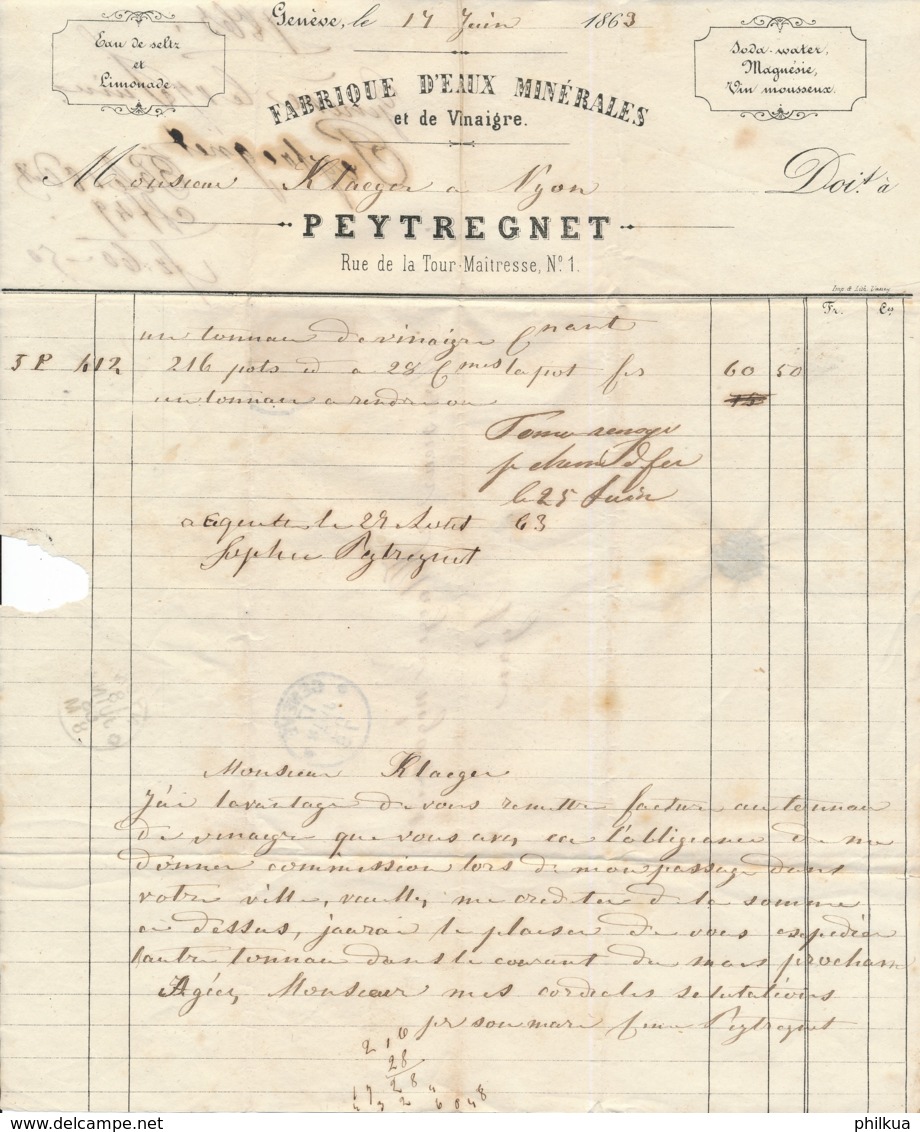 Genève, le 17 Juin 1863
Eau de seltz
et
Limonade.
Soda-water,
Magnésie,
Vin mousseux.
FABRIQUE D'EAUX MINÉRALES
et de Vinaigre.
Monsieur Klaeger a Nyon Doit à
PEYTREGNET
Rue de la Tour-Maîtresse, N° 1.
Fr. Cs
un tonneau de vinaigre Cnant
J P 412 216 pots id a 28 Cmes la pot frs 60 50
un tonneau a rendre ou
Tonneau renvoyé
p chemin d fer
le 25 Juin
acquitté le 27 63
Sophie Peytregnet
GENÈVE
Monsieur Klaeger
J'ai lavantage de vous remettre facture au tonneau
de vinaigre que vous avez eu l'obligeance de me
donner commission lors de mon passage dans
votre ville, veuillez me crediter de la somme
ci dessus, jaurai le plaisir de vous expédier
lautre tonneau dans le courant du mois prochain
Agéez, Monsieur mes cordiales salutations
pr son mari femme Peytregnet
216
28
6048
philkua